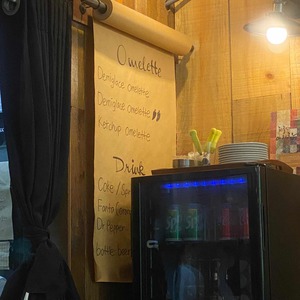 Omelette
Demiglace omelette
Demiglace omelette
Ketchup omelette
Drink
Coke /
Fanta
Dr Pepper
bottle